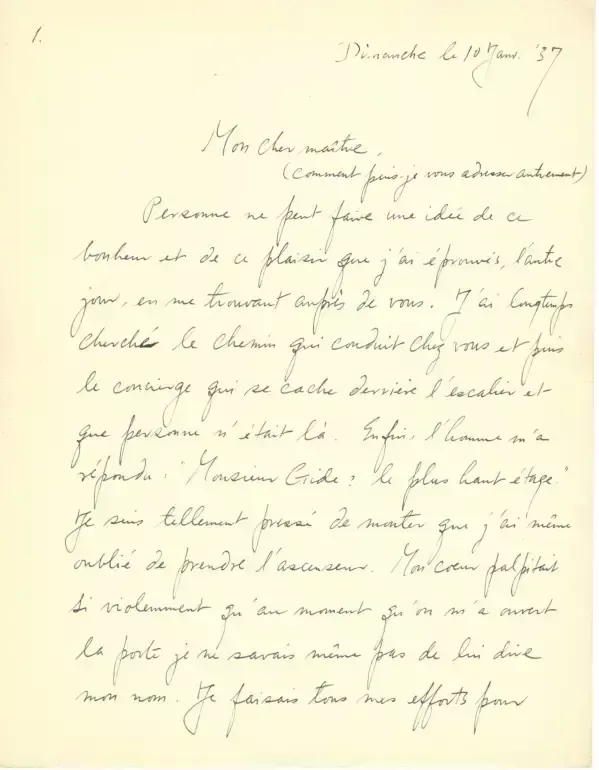 1.
Dimanche le 10 Janv. '37
Mon cher maître,
(comment puis-je vous adresser autrement)
Personne ne peut faire une idée de ce
bonheur et de ce plaisir que j'ai éprouvés, l'autre
jour, en me trouvant auprès de vous. J'ai longtemps
cherché le chemin qui conduit chez vous et puis
le concierge qui se cache derrière l'escalier et
que personne n'était là. Enfin, l'homme m'a
répondu: "Monsieur Gide? le plus haut étage."
Je suis tellement pressé de monter que j'ai même
oublié de prendre l'ascenseur. Mon coeur palpitait
si violemment qu'au moment qu'on m'a ouvert
la porte je ne savais même pas de lui dire
mon nom. Je faisais tous mes efforts pour